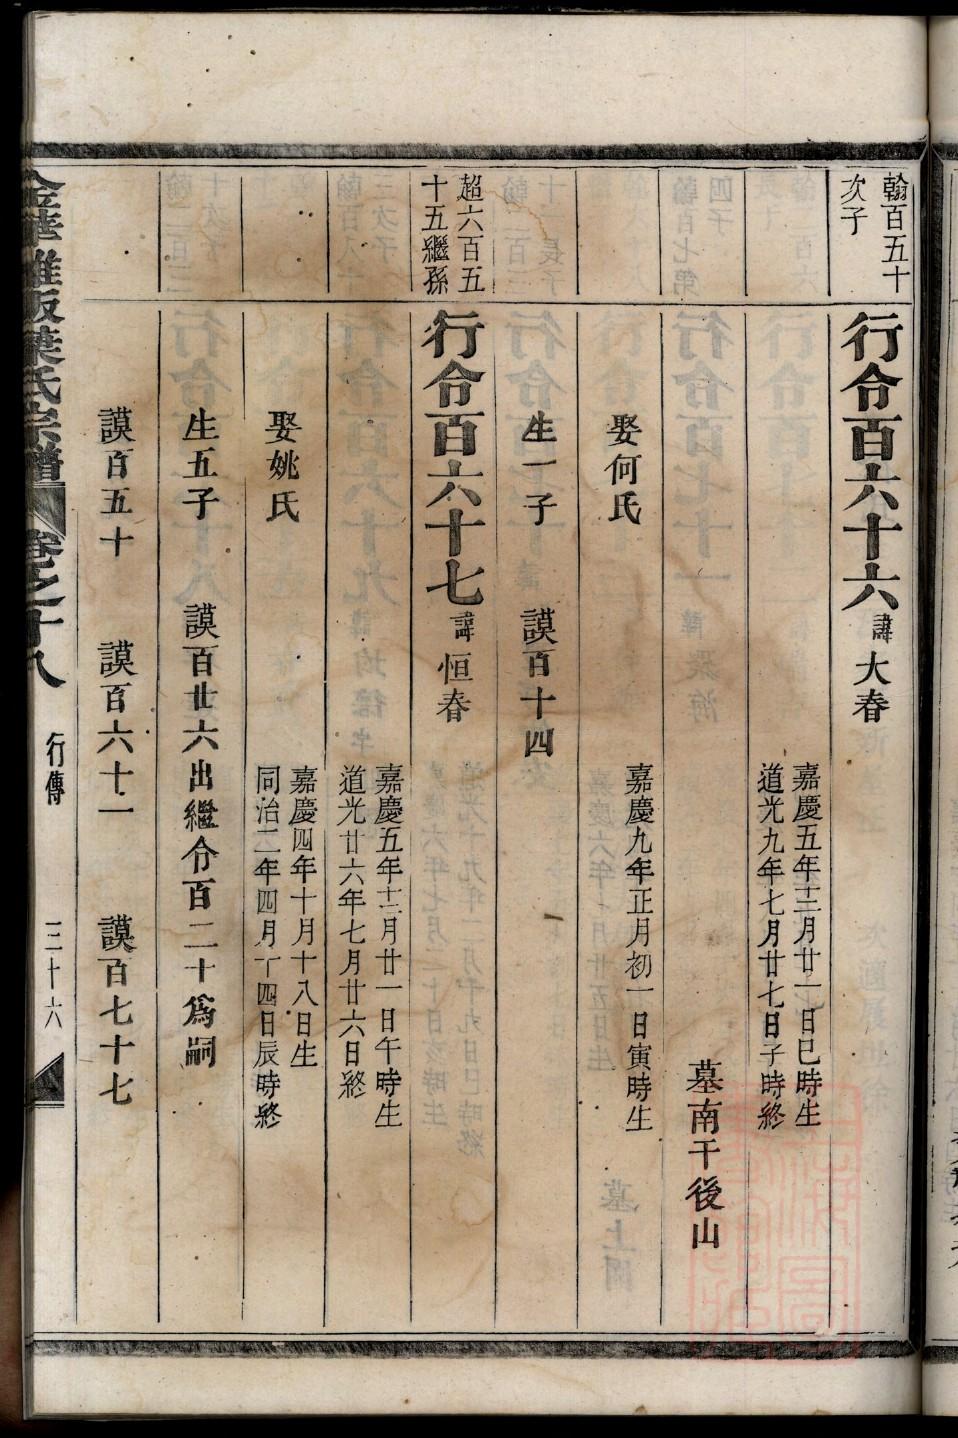 翰百五十
次子
行令百六十六 諱大春
嘉慶五年十二月廿一日巳時生
道光九年七月廿七日子時終
墓南干後山
娶何氏
嘉慶九年正月初一日寅時生
生一子 謨百十四
超六百五
十五繼孫
行令百六十七 諱恒春
嘉慶五年十二月廿一日午時生
道光廿六年七月廿六日終
娶姚氏
嘉慶四年十月十八日生
同治二年四月十四日辰時終
生五子 謨百世六出繼令百二十為嗣
謨百五十 謨百六十一 謨百七十七
金華雅畈葉氏宗譜 卷之十八 行傳 三十六